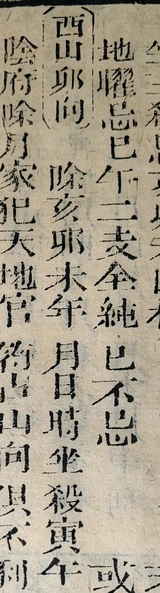 地曜忌巳午二支全純巳不忌 或
酉山卯向 除亥卯未年 月日時坐殺寅午
陰府除月家犯天地官 符占山向俱不利